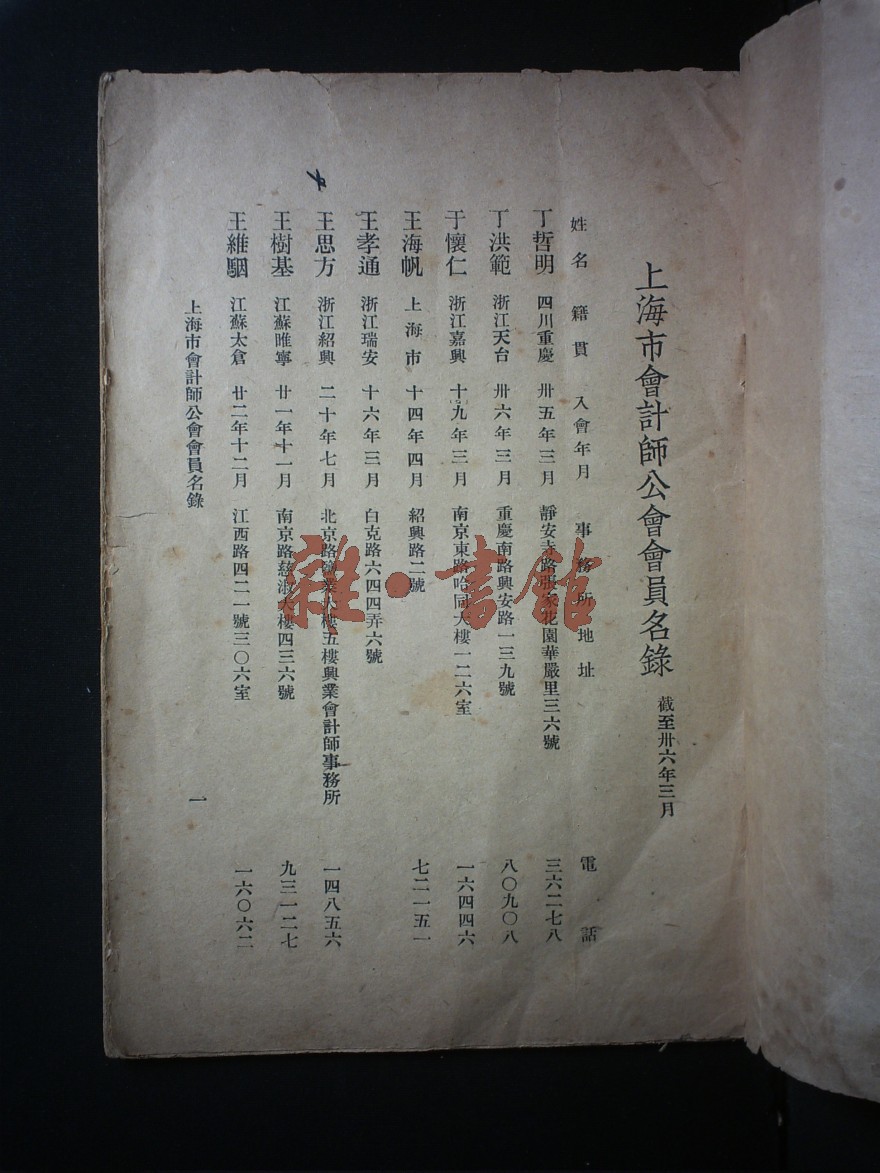 上海市會計師公會會員名錄 截至卅六年三月
姓名 籍貫 入會年月 事務所地址 電話
丁哲明 四川重慶 卅五年三月 靜安寺路張家花園華嚴里三六號 三六二七八
丁洪範 浙江天台 卅六年三月 重慶南路興安路一三九號 八〇九〇八
于懷仁 浙江嘉興 十九年三月 南京東路哈同大樓一二六室 一六四四六
王海帆 上海市 十四年四月 紹興路二號 七二一五一
王孝通 浙江瑞安 十六年三月 白克路六四四弄六號
王思方 浙江紹興 二十年七月 北京路鹽業大樓五樓興業會計師事務所 一四八五六
王樹基 江蘇睢寧 廿一年十一月 南京路慈淑大樓四三六號 九三一二七
王維駰 江蘇太倉 廿二年十二月 江西路四二一號三〇六室 一六〇六二
上海市會計師公會會員名錄 一
雜·書館